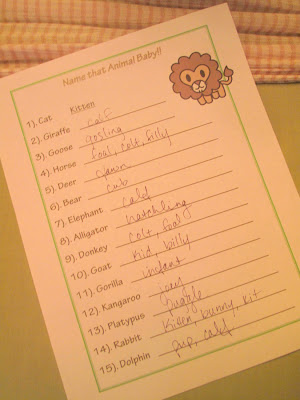 Name that Animal Baby!!
1). Cat Kitten
2). Giraffe calf
3). Goose gosling
4). Horse foal, colt, filly
5). Deer fawn
6). Bear cub
7). Elephant calf
8). Alligator hatchling
9). Donkey colt, foal
10). Goat kid, billy
11). Gorilla infant
12). Kangaroo joey
13). Platypus puggle
14). Rabbit bunny, kit
15). Dolphin pup, calf